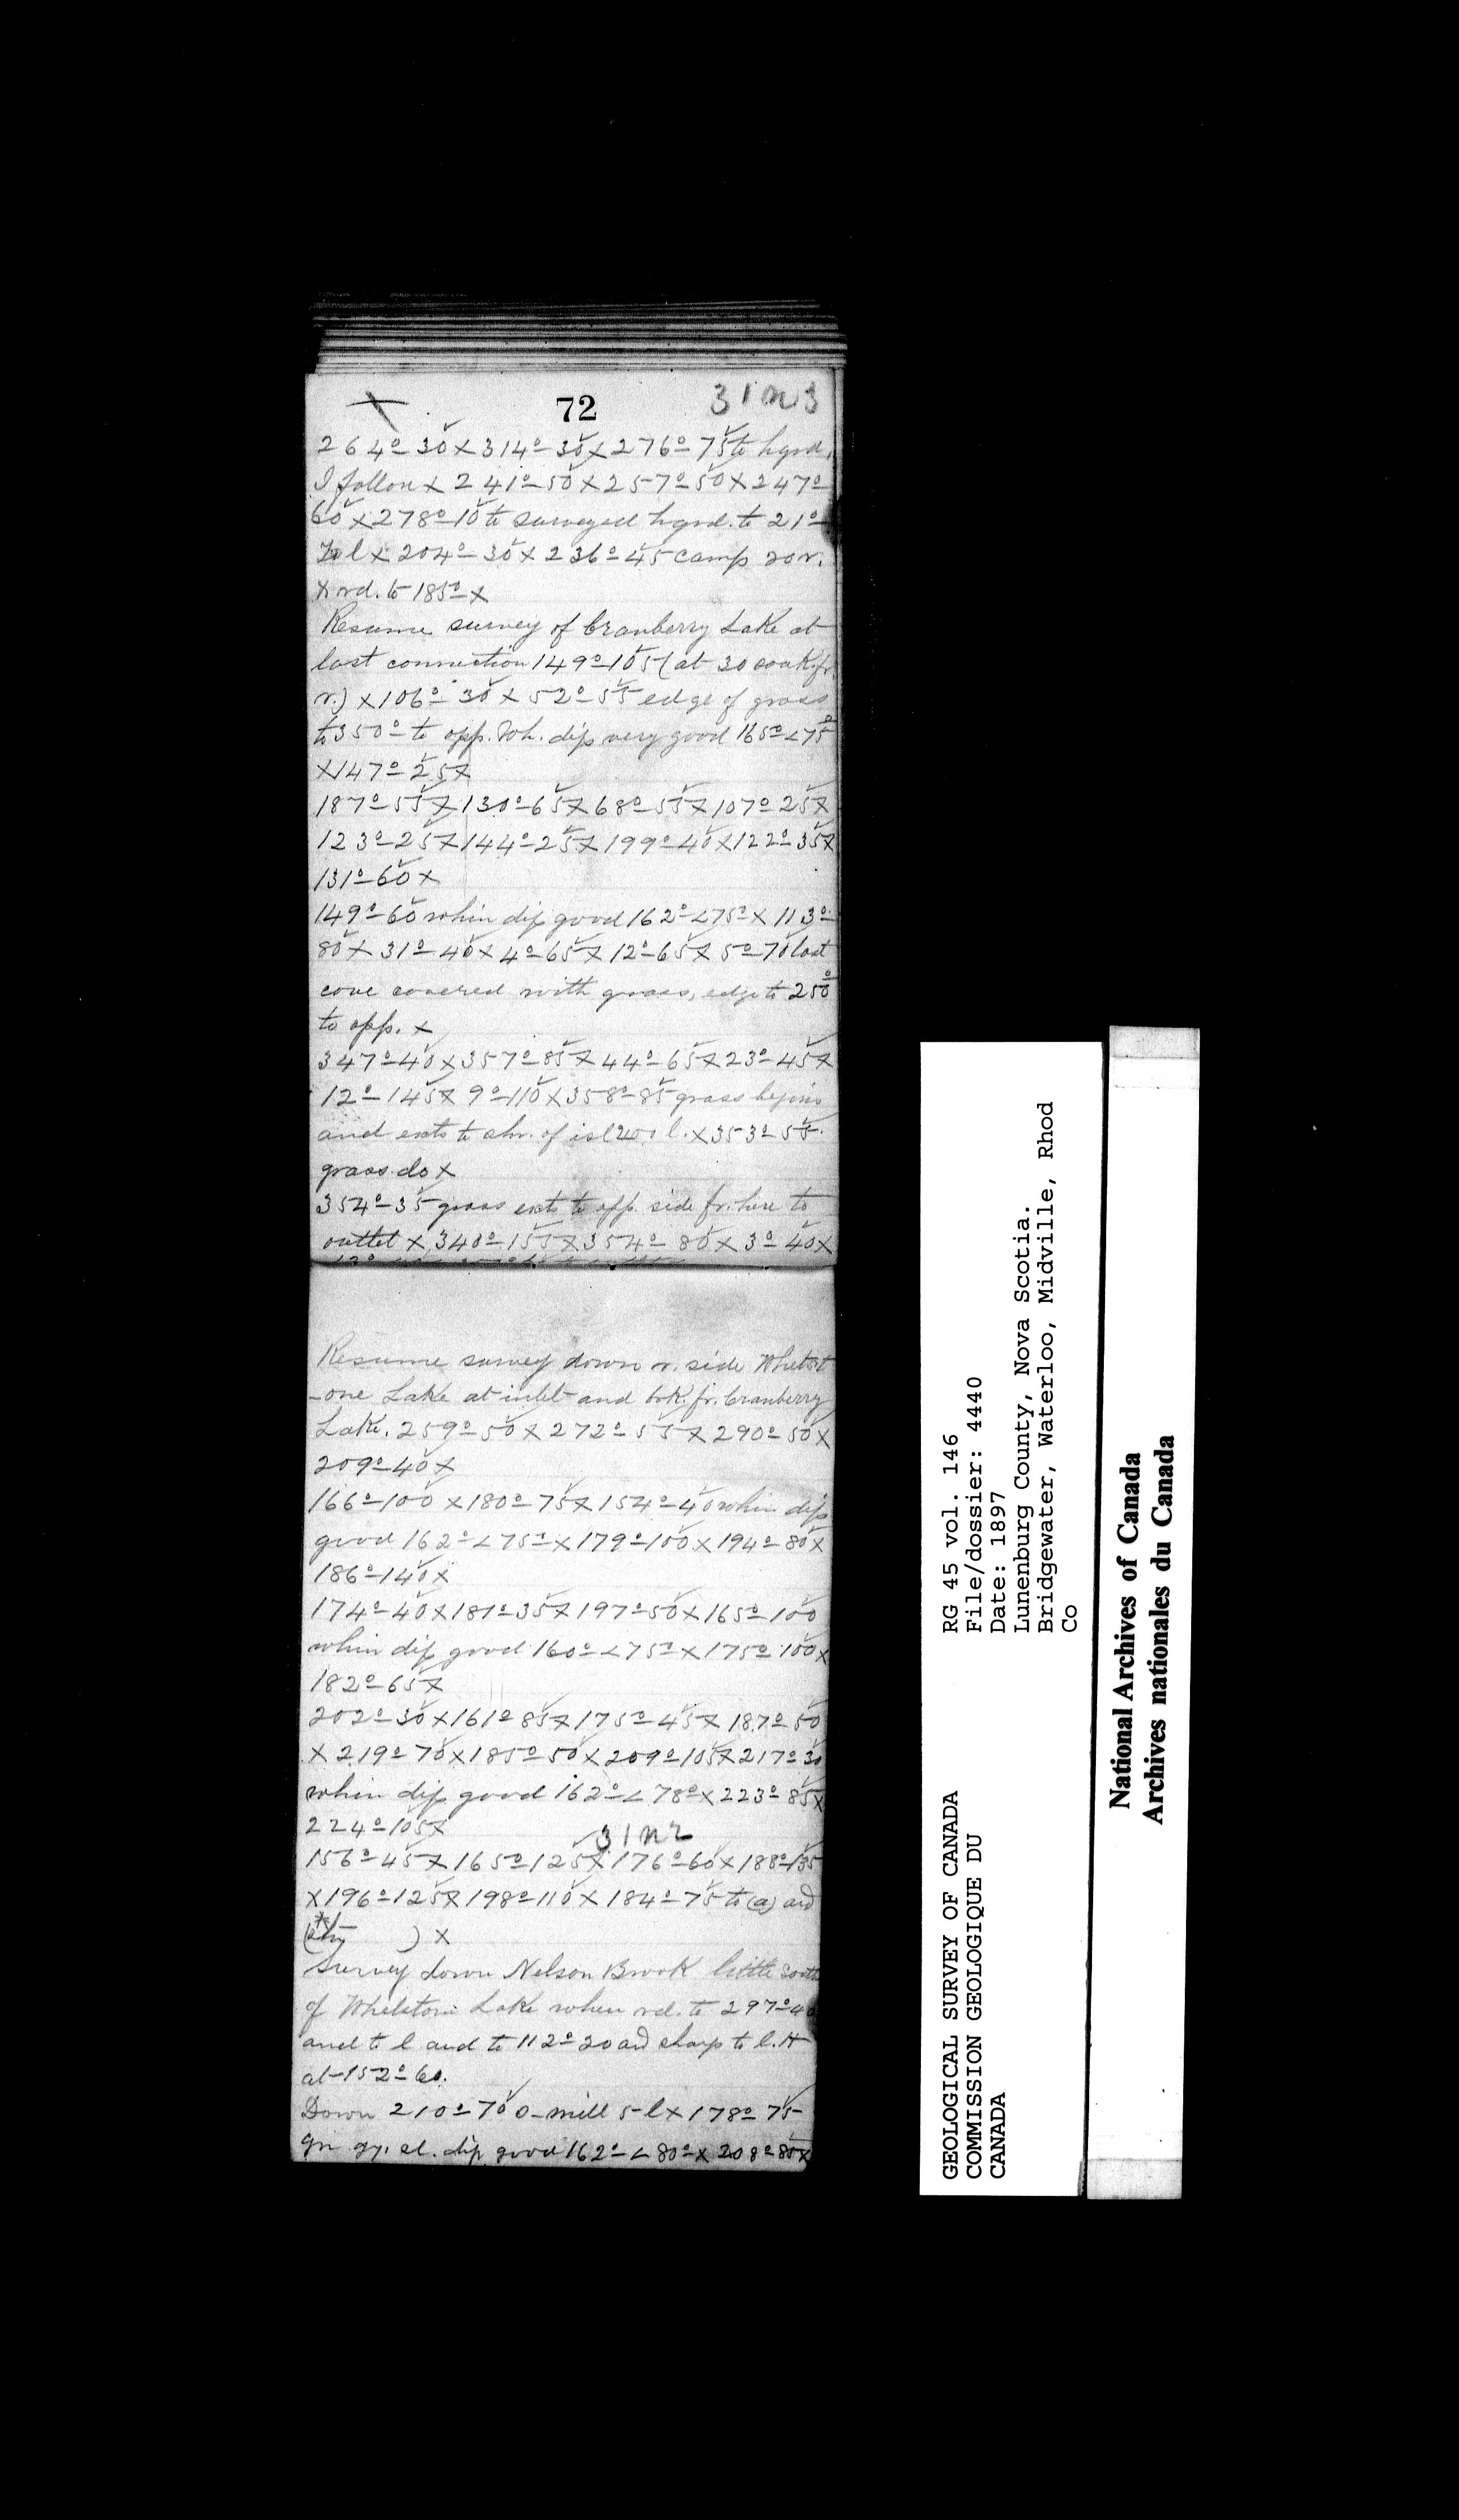 72
31 m 3
264º-30 x 314º-30 x 276º-75 to hgrd.
I follow x 241º-50 x 257º-50 x 247º-
60 x 278º-10 to surveyed hgrd. to 21º-
l x 204º-30 x 236º-45 camp 20 r.
x rd. to 185º-x
Resume survey of Cranberry Lake at
last connection 149º-105 (at 30 fr
r.) x 106º-30 x 52º-55 edge of grass
to 350º- to opp. Wh. dip very good 165º<75º
x 147º-25 x
187º-55 x 130º-65 x 68º-55 x 107º-25 x
123º-25 x 144º-25 x 199º-40 x 122º-35 x
131º-60 x
149º-60 whin dip good 162º-<75º-x 113º-
80 x 31º-40 x 4º-65 x 12º-65 x 5º-70 last
cove covered with grass, edge to 250º
to opp. x
347º-40 x 357º-85 x 44º-65 x 23º-45 x
12º-145 x 9º-110 x 358º-85 grass begins
and exts to shr. of isl 200 l. x 353º-55.
grass do x
354º-35 grass exts to opp. side fr. here to
outlet x 340º-155 x 354º-80 x 3º-40 x
Resume survey down r. side Whetst
-one Lake at inlet and bk. fr. Cranberry
Lake. 259º-50 x 272º-55 x 290º-50 x
209º-40 x
166º-100 x 180º-75 x 154º-40 whin dip
good 162º-<75º-x 179º-100 x 194º-80 x
186º-140 x
174º-40 x 181º-35 x 197º-50 x 165º-100
whin dip good 160º-<75º-x 175º-100 x
182º-65 x
202º-30 x 161º-85 x 175º-45 x 187º-50
x 219º-70 x 185º-50 x 209º-105 x 217º-30
whin dip good 162º-<78º-x 223º-85 x
224º-105 x
31 m 2
156º-45 x 165º-125 x 176º-60 x 188º-135
x 196º-125 x 198º-110 x 184º-75 to (a) and
( ) x
Survey down Nelson Brook little south
of Whetstone Lake when rd. to 297º-40
and to l and to 112º-20 and sharp to l. H
at 152º-60.
Down 210º-70 o-mill 5-l x 178º-75-
gn gy. sl. dip good 162º-<80º-x 208º-80 x
GEOLOGICAL SURVEY OF CANADA
COMMISSION GEOLOGIQUE DU
CANADA
RG 45 vol. 146
File/dossier: 4440
Date: 1897
Lunenburg County, Nova Scotia.
Bridgewater, Waterloo, Midville, Rhod
Co
National Archives of Canada
Archives nationales du Canada